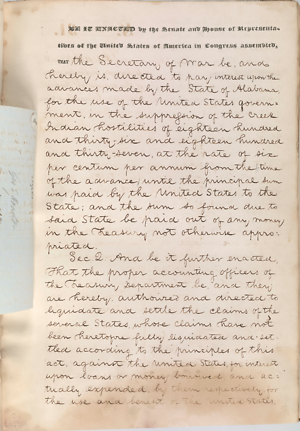 BE IT ENACTED by the Senate and House of Representa-
tives of the United States of America in Congress assembled,
THAT the Secretary of War be, and
hereby is, directed to pay interest upon the
advances made by the State of Alabama
for the use of the United States govern-
ment, in the suppression of the Creek
Indian hostilities of eighteen hundred
and thirty-six and eighteen hundred
and thirty-seven, at the rate of six
per centum per annum from the time
of the advance, until the principal sum
was paid by the United States to the
State; and the sum so found due to
said State be paid out of any money
in the Treasury not otherwise appro-
priated.
Sec. 2 And be it further enacted,
That the proper accounting officers of
the Treasury Department be, and they
are hereby, authorized and directed to
liquidate and settle the claims of the
several States whose claims have not
been heretofore fully liquidated and set-
tled according to the principles of this
act, against the United States for interest
upon loans or money borrowed and ac-
tually expended by them respectively for
the use and benefit of the United States,